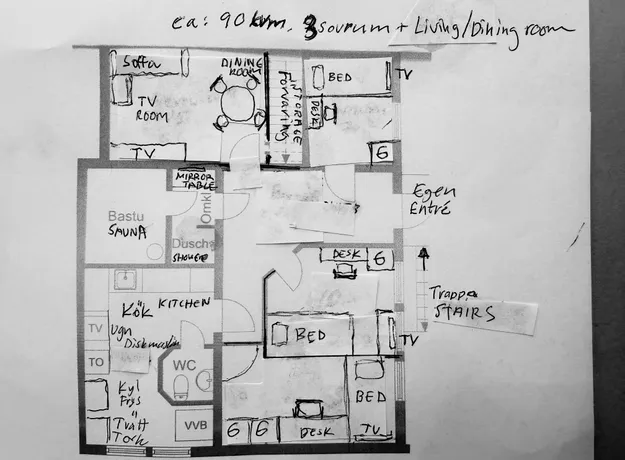 ca: 90 kvm. 3 sovrum + Living/Dining room
Soffa
DINING
ROOM
TV
ROOM
TV
STORAGE
Förvaring
BED
TV
DESK
G
MIRROR
TABLE
Omkl
Bastu
SAUNA
Dusch
SHOWER
Egen
Entré
DESK
G
Trappa
STAIRS
Kök KITCHEN
TV
Ugn
Diskmaskin
TO
BED
TV
WC
Kyl
Frys
Tvätt
Tork
VVB
BED
G G
DESK
TV